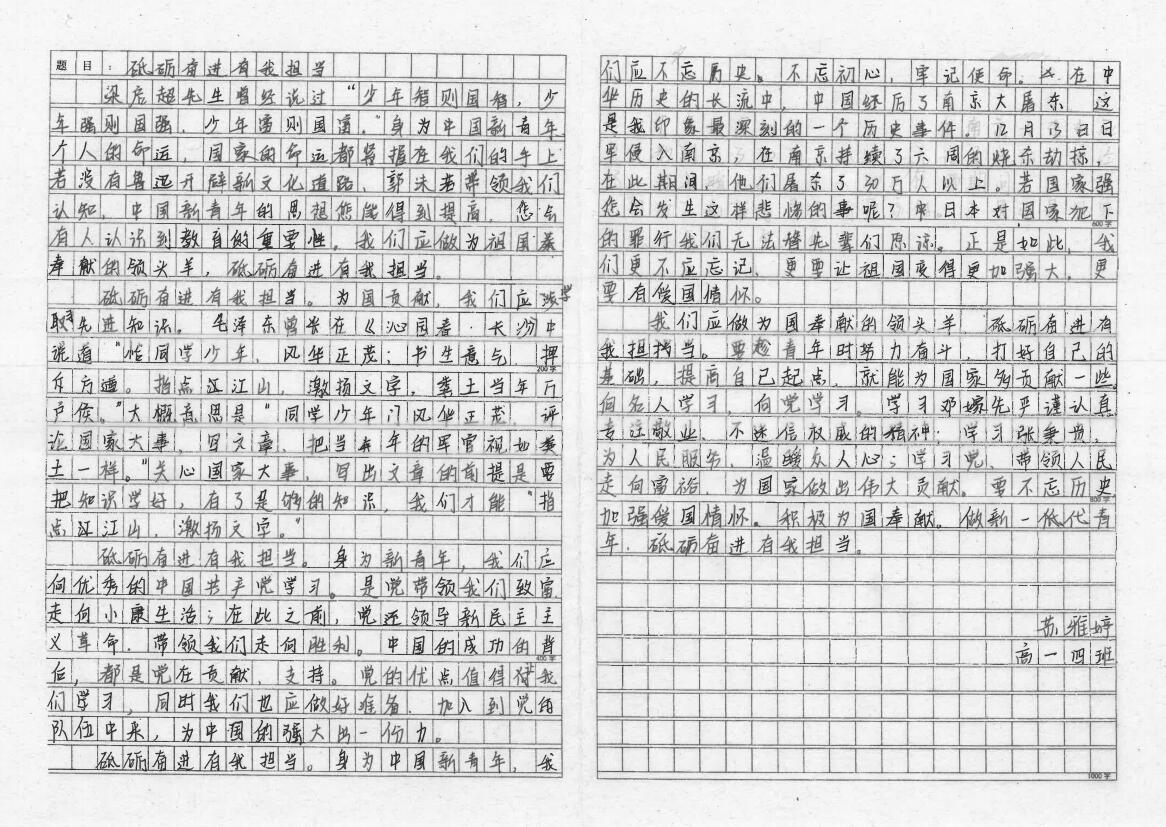 题目：砥砺奋进有我担当
梁启超先生曾经说过"少年智则国智，少
年强则国强，少年富则国富。"身为中国新青年
个人的命运，国家的命运都掌握在我们的手上
若没有鲁迅开辟新文化道路，郭沫若带领我们
认知，中国新青年的思想怎能得到提高，怎会
有人认识到教育的重要性。我们应做为祖国
奉献的领头羊，砥砺奋进有我担当。
砥砺奋进有我担当。为国贡献，我们应学
取先进知识。毛泽东曾长在《沁园春·长沙》中
说道"恰同学少年，风华正茂；书生意气，挥
斥方遒。指点江江山，激扬文字，粪土当年万
户侯。"大概意思是"同学少年们风华正茂，评
论国家大事，写文章，把当年的军官视如粪
土一样。"关心国家大事，写出文章的前提是要
把知识学好，有了足够的知识，我们才能"指
点江江山，激扬文字。"
砥砺奋进有我担当。身为新青年，我们应
向优秀的中国共产党学习。是党带领我们致富
走向小康生活；在此之前，党还领导新民主主
义革命，带领我们走向胜利。中国的成功的背
后，都是党在贡献、支持。党的优点值得我
们学习，同时我们也应做好准备，加入到党的
队伍中来，为中国的强大出一份力。
砥砺奋进有我担当。身为中国新青年，我
们应不忘历史。不忘初心，牢记使命。在中
华历史的长流中，中国经历了南京大屠杀，这
是我印象最深刻的一个历史事件。12月13日日
军侵入南京，在南京持续了六周的烧杀劫掠，
在此期间，他们屠杀了30万人以上。若国家强
怎会发生这样悲惨的事呢？日本对国家犯下
的罪行我们无法替先辈们原谅。正是如此，我
们更不应忘记，更要让祖国变得更加强大，更
要有爱国情怀。
我们应做为国奉献的领头羊，砥砺奋进有
我担当。要趁青年时努力奋斗，打好自己的
基础，提高自己起点，就能为国家多贡献一些。
向名人学习，向党学习。学习邓稼先严谨认真
专注敬业、不迷信权威的精神；学习张秉贵，
为人民服务，温暖众人心；学习党，带领人民
走向富裕，为国家做出伟大贡献。要不忘历史
加强爱国情怀。积极为国奉献。做新一代青
年，砥砺奋进有我担当。
苏雅婷
高一四班
200字
400字
600字
800字
1000字